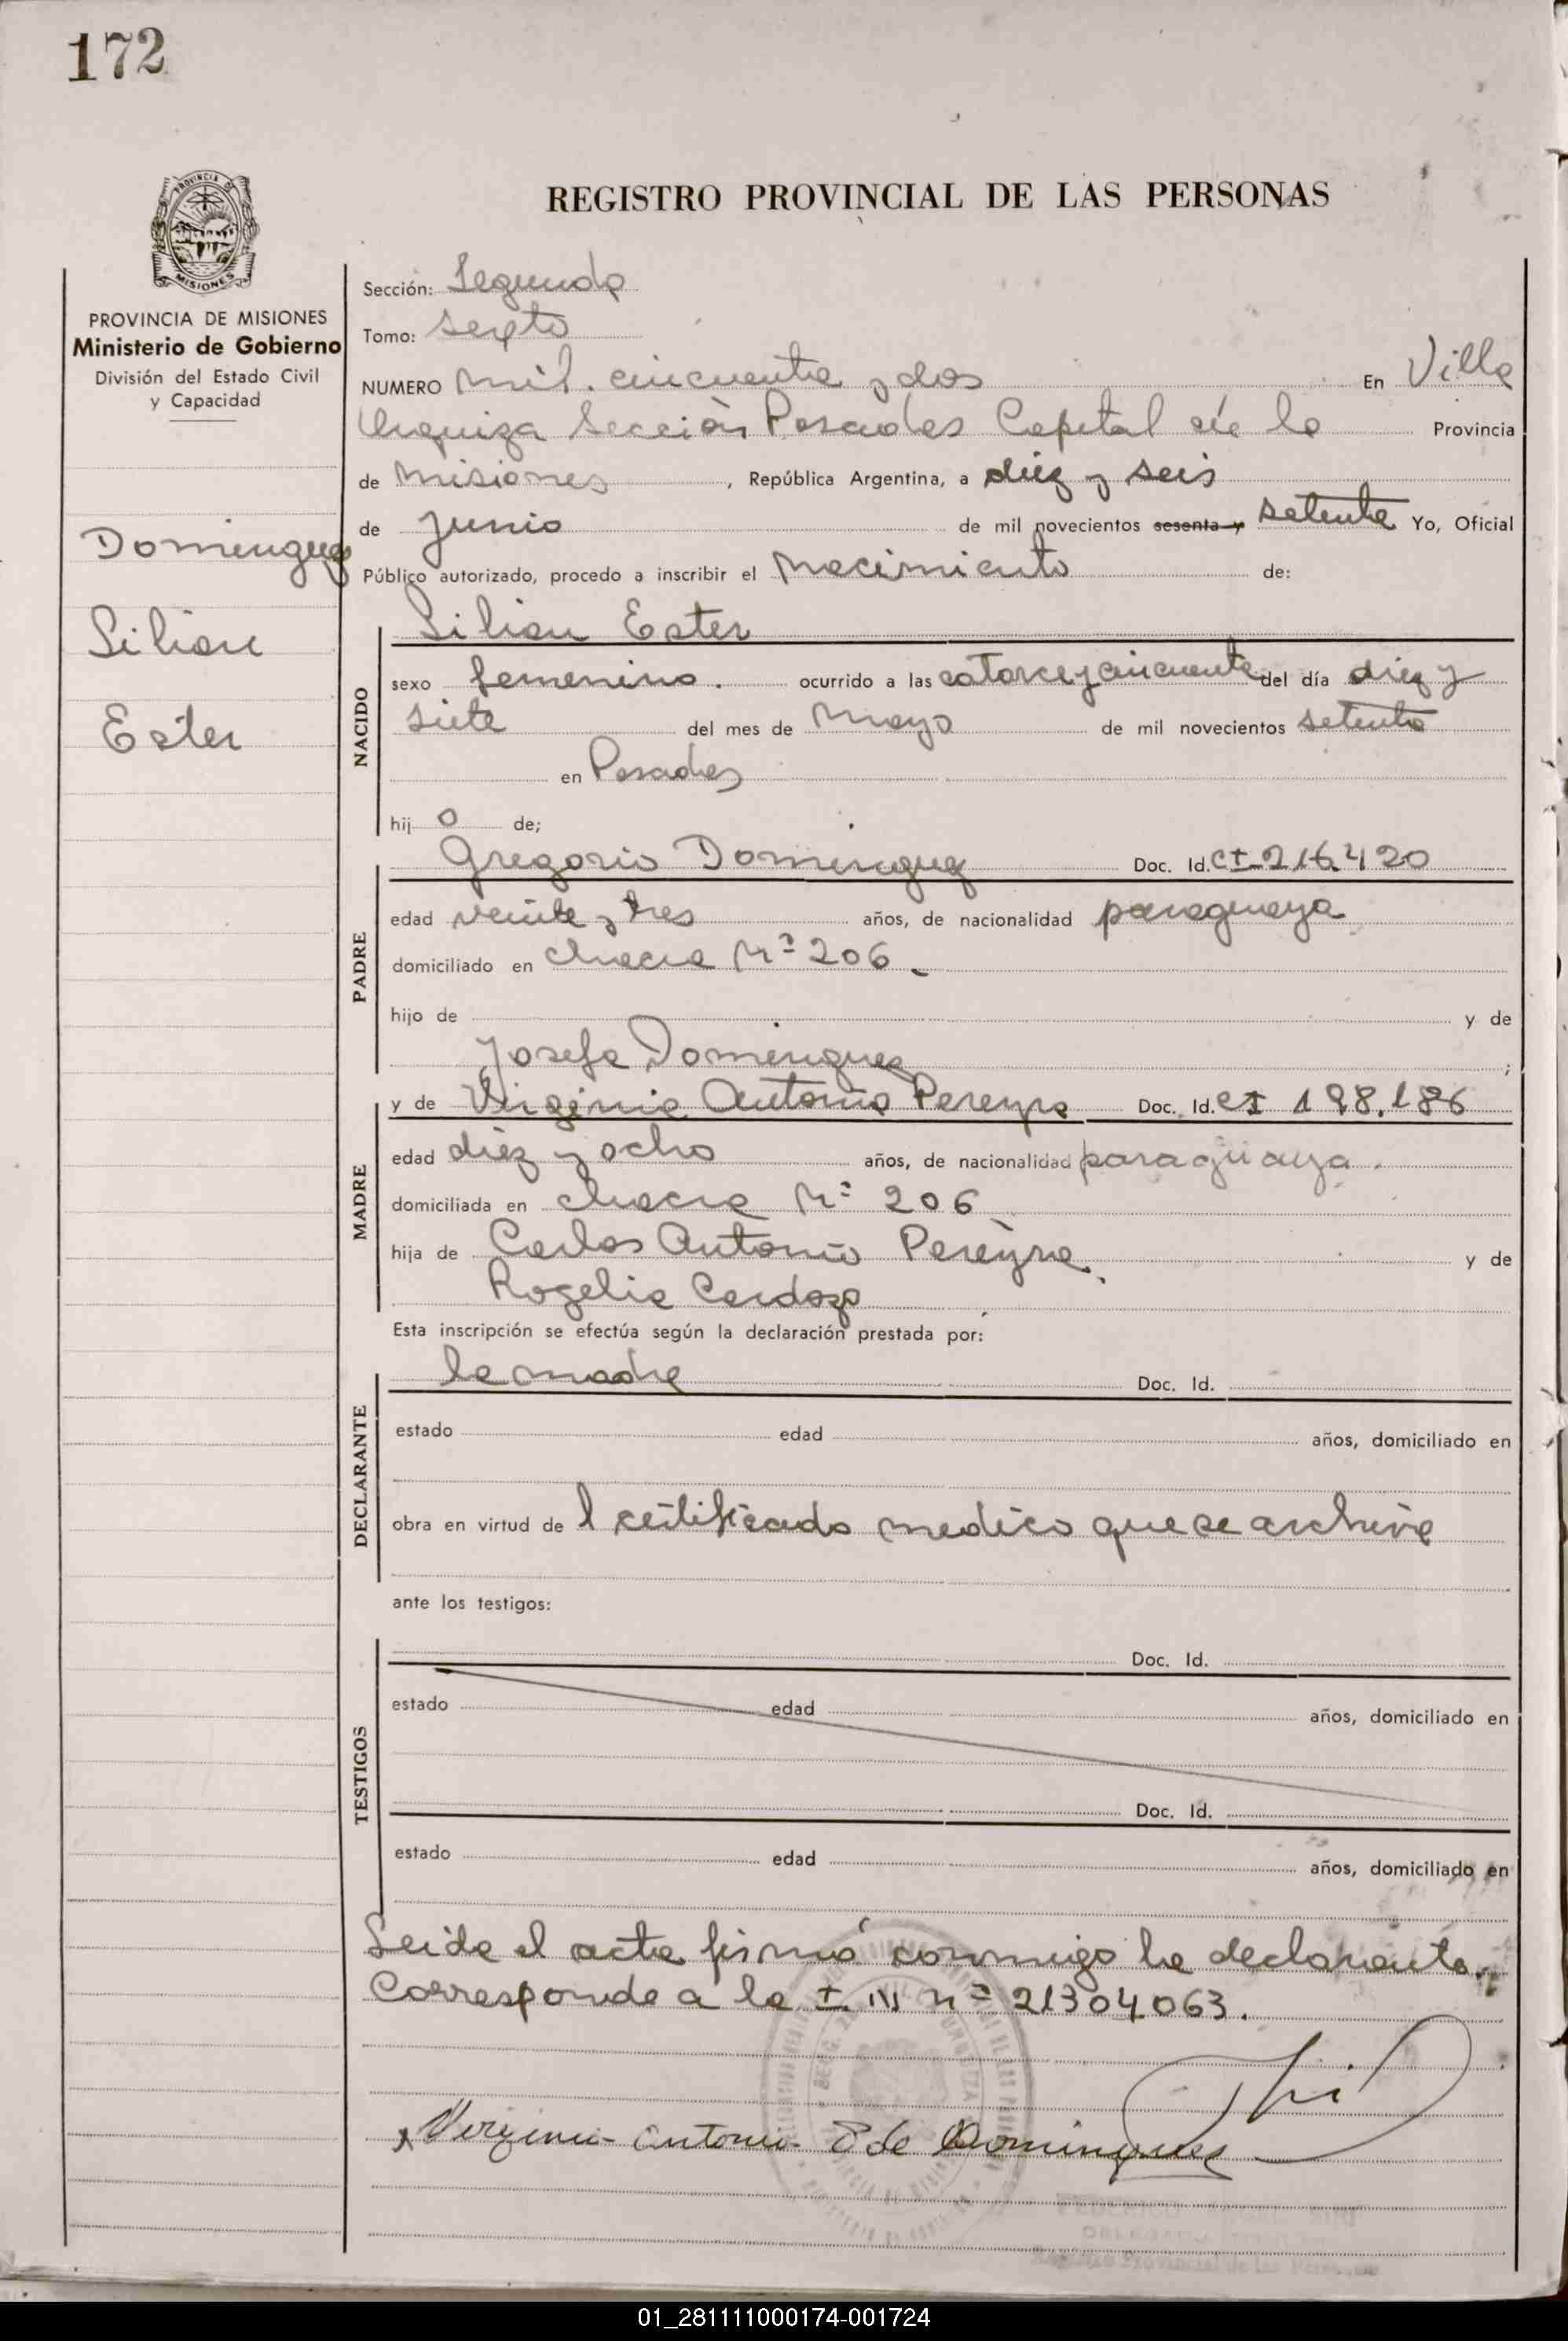 172
REGISTRO PROVINCIAL DE LAS PERSONAS
PROVINCIA DE MISIONES
Ministerio de Gobierno
División del Estado Civil
y Capacidad
Dominguez
Lilian
Ester
Sección: Segunda
Tomo: sexto
NUMERO mil. cincuenta y dos En Villa
Urquiza Sección Posadas Capital de la Provincia
de Misiones, República Argentina, a diez y seis
de Junio de mil novecientos sesenta y setenta Yo, Oficial
Público autorizado, procedo a inscribir el Nacimiento de:
NACIDO
Lilian Ester
sexo femenino. ocurrido a las catorce y cincuenta del día diez y
siete del mes de Mayo de mil novecientos setenta
en Posadas
hij o de;
PADRE
Gregorio Dominguez Doc. Id. CI 216.420
edad veinte y tres años, de nacionalidad paraguaya
domiciliado en chacra Nº 206.
hijo de y de
Josefa Dominguez;
MADRE
y de Virginia Antonia Pereyra Doc. Id. CI 198.186
edad diez y ocho años, de nacionalidad paraguaya.
domiciliada en chacra Nº 206
hija de Carlos Antonio Pereyra. y de
Rogelia Cardozo
Esta inscripción se efectúa según la declaración prestada por:
DECLARANTE
la madre Doc. Id.
estado edad años, domiciliado en
obra en virtud de l certificado medico que se archiva
ante los testigos:
TESTIGOS
Doc. Id.
estado edad años, domiciliado en
Doc. Id.
estado edad años, domiciliado en
Leida el acta firmó conmigo la declarante.
Corresponde a la nº 21304063.
Virginia Antonia P de Dominguez
01_281111000174-001724